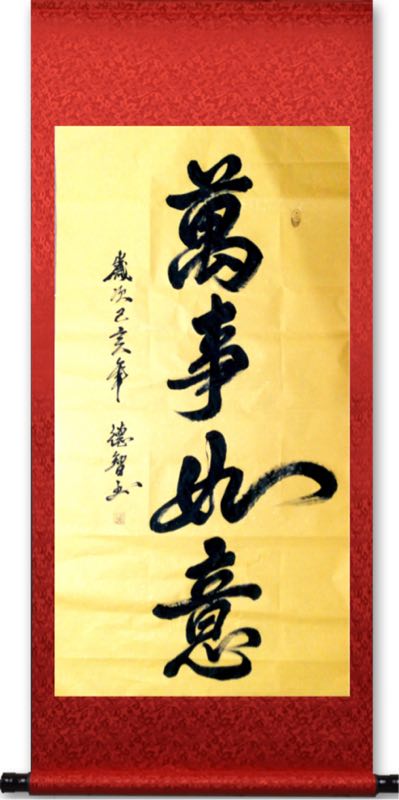 萬事如意
歲次己亥年 德智书